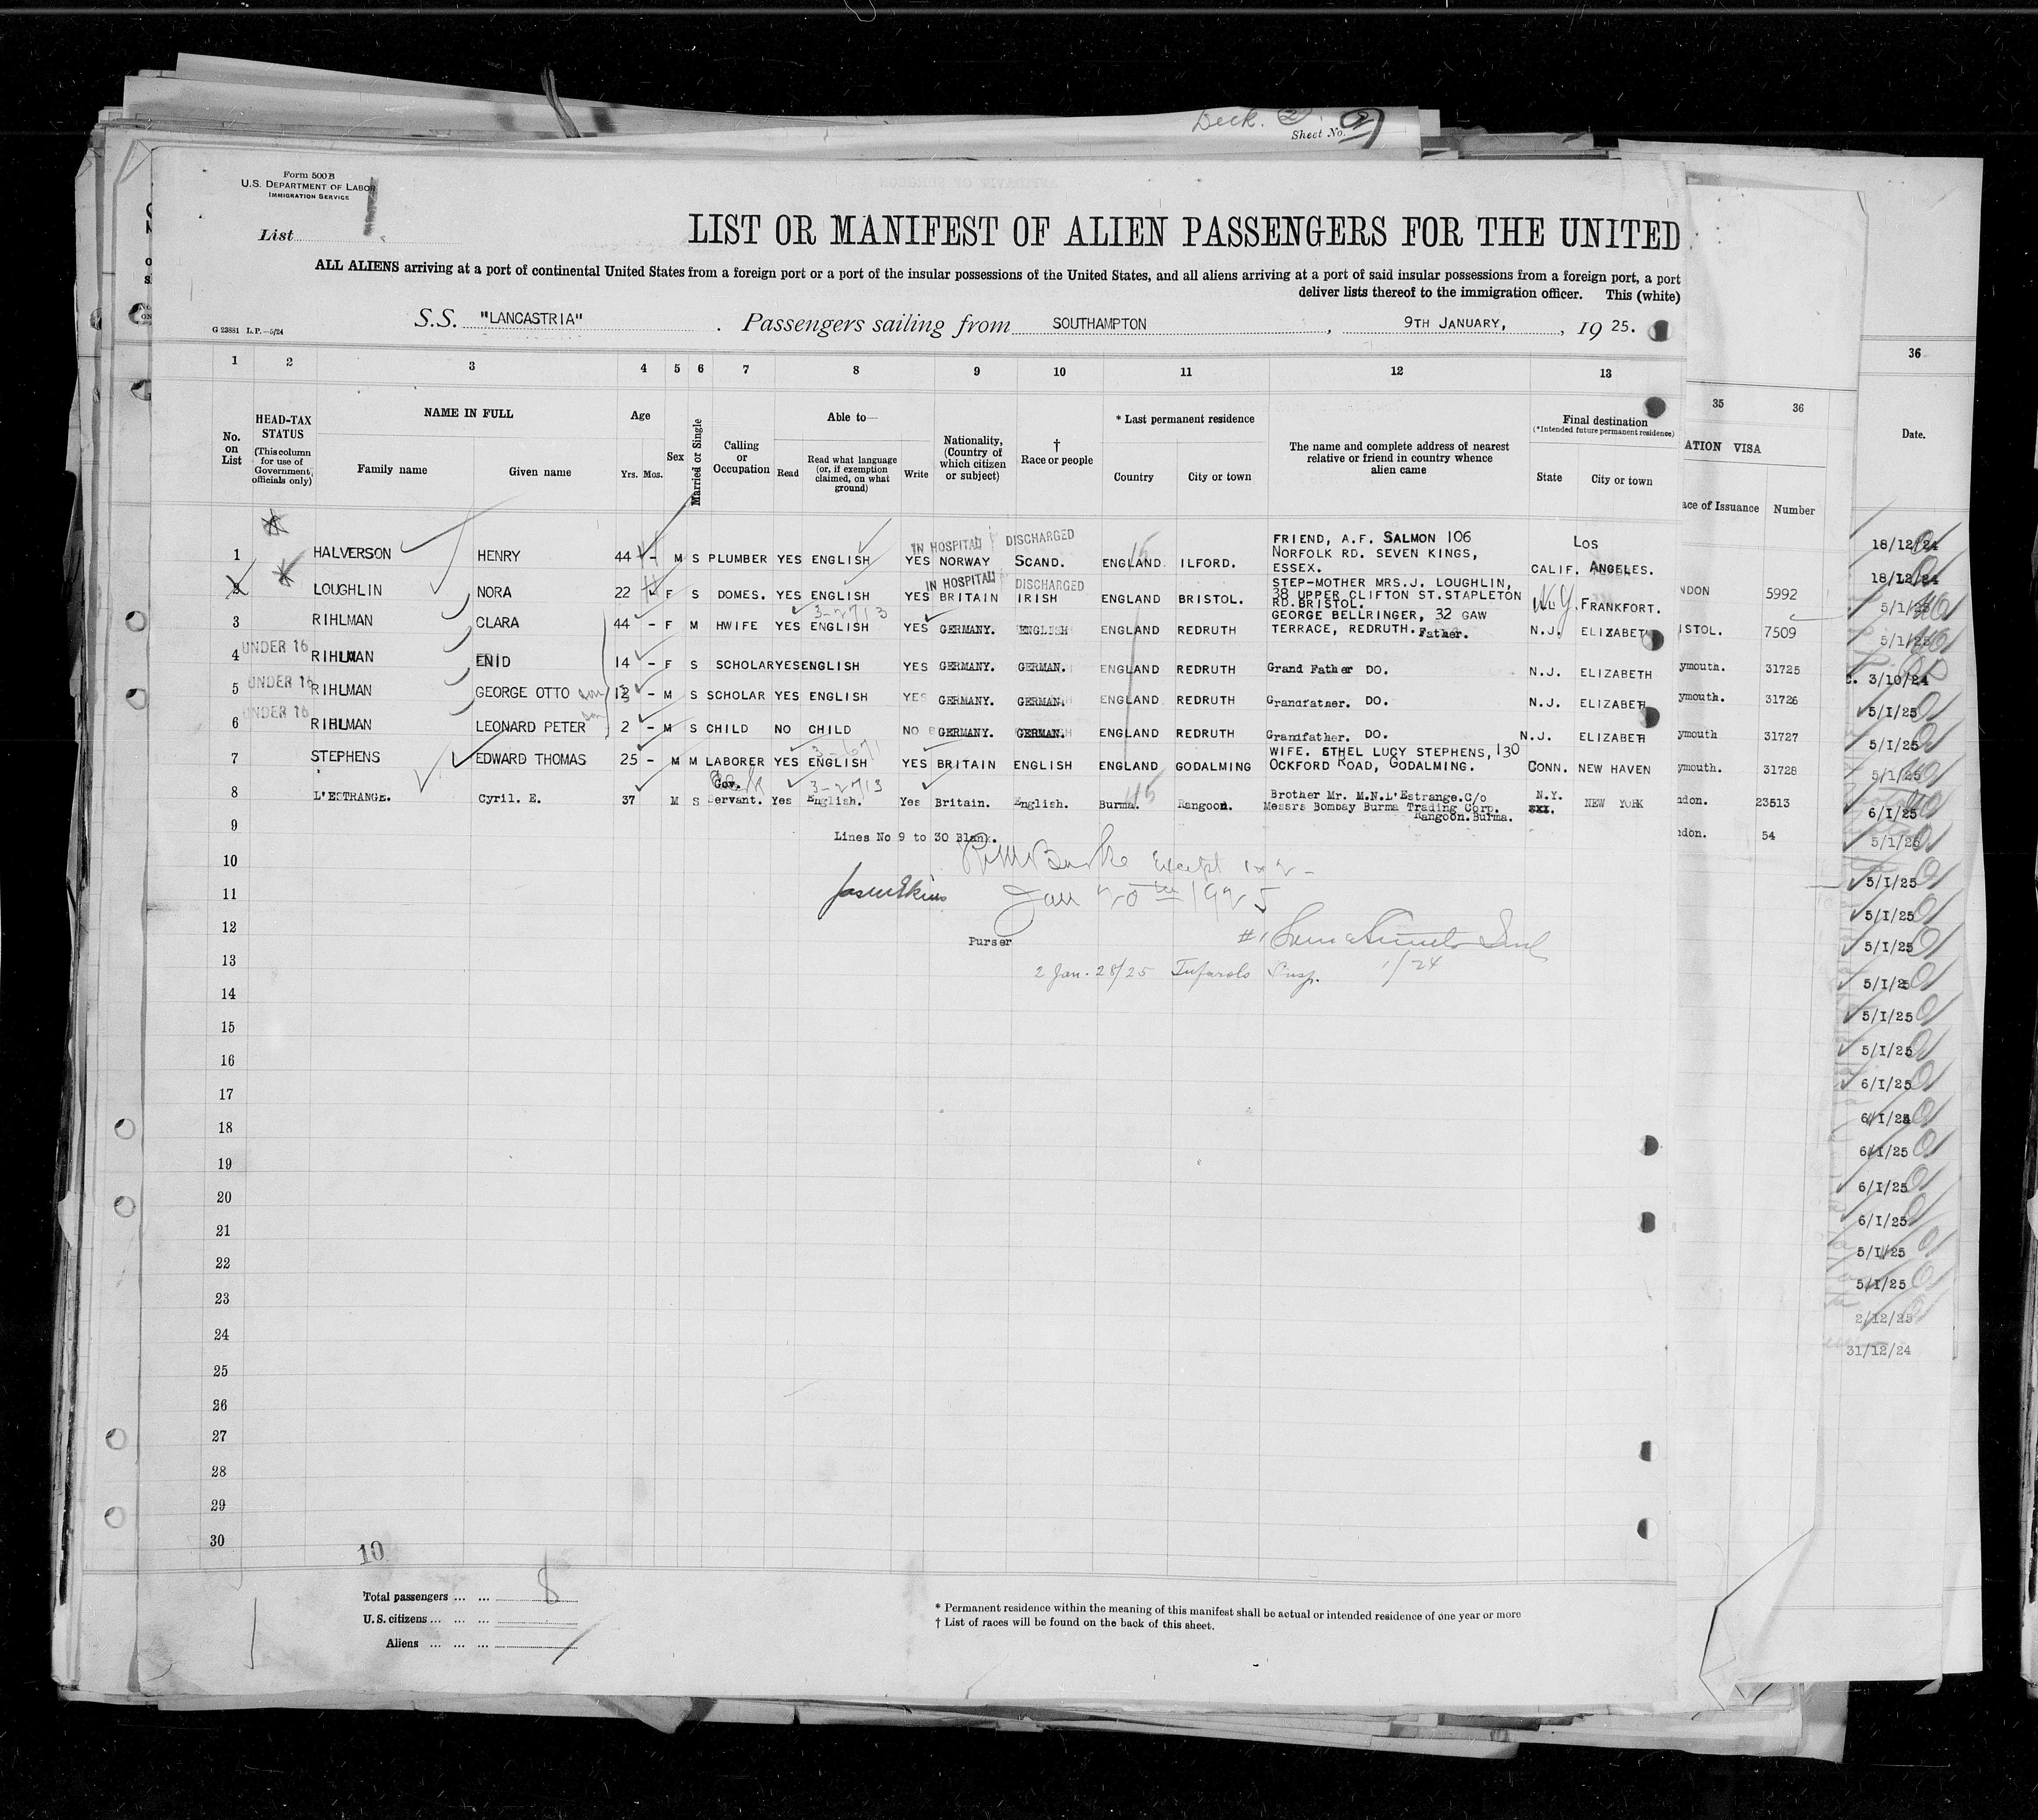 Deck. 2.
Sheet No. 2
Form 500 B
U.S. DEPARTMENT OF LABOR
IMMIGRATION SERVICE
List 1
LIST OR MANIFEST OF ALIEN PASSENGERS FOR THE UNITED
ALL ALIENS arriving at a port of continental United States from a foreign port or a port of the insular possessions of the United States, and all aliens arriving at a port of said insular possessions from a foreign port, a port
deliver lists thereof to the immigration officer. This (white)
G 23881 L.P.—5/24
S.S. "LANCASTRIA" . Passengers sailing from SOUTHAMPTON , 9TH JANUARY, , 19 25.
1 2 3 4 5 6 7 8 9 10 11 12 13
No. on List
HEAD-TAX STATUS
(This column for use of Government officials only)
NAME IN FULL
Family name Given name
Age
Yrs. Mos.
Sex
Married or Single
Calling or Occupation
Able to—
Read
Read what language (or, if exemption claimed, on what ground)
Write
Nationality, (Country of which citizen or subject)
† Race or people
* Last permanent residence
Country City or town
The name and complete address of nearest relative or friend in country whence alien came
Final destination
(*Intended future permanent residence)
State City or town
35 36
ATION VISA
ace of Issuance Number
36
Date.
IN HOSPITAL DISCHARGED
1 HALVERSON HENRY 44 - M S PLUMBER YES ENGLISH YES NORWAY SCAND. ENGLAND. ILFORD. FRIEND, A.F. SALMON 106
NORFOLK RD. SEVEN KINGS,
ESSEX. CALIF. LOS ANGELES.
IN HOSPITAL DISCHARGED
2 LOUGHLIN NORA 22 F S DOMES. YES ENGLISH YES BRITAIN IRISH ENGLAND BRISTOL. STEP-MOTHER MRS.J. LOUGHLIN,
38 UPPER CLIFTON ST.STAPLETON
RD.BRISTOL. N.Y. FRANKFORT.
3-2713
3 RIHLMAN CLARA 44 - F M HWIFE YES ENGLISH YES GERMANY. ENGLISH ENGLAND REDRUTH GEORGE BELLRINGER, 32 GAW
TERRACE, REDRUTH. Father. N.J. ELIZABETH
UNDER 16
4 RIHLMAN ENID 14 - F S SCHOLAR YES ENGLISH YES GERMANY. GERMAN. ENGLAND REDRUTH Grand Father DO. N.J. ELIZABETH
UNDER 16
5 RIHLMAN GEORGE OTTO son 12 - M S SCHOLAR YES ENGLISH YES GERMANY. GERMAN. ENGLAND REDRUTH Grandfather. DO. N.J. ELIZABETH
UNDER 16
6 RIHLMAN LEONARD PETER son 2 - M S CHILD NO CHILD NO GERMANY. GERMAN. ENGLAND REDRUTH Grandfather. DO. N.J. ELIZABETH
3-671
7 STEPHENS EDWARD THOMAS 25 - M M LABORER YES ENGLISH YES BRITAIN ENGLISH ENGLAND GODALMING WIFE. ETHEL LUCY STEPHENS, 130
OCKFORD ROAD, GODALMING. CONN. NEW HAVEN
3-2713
8 L'ESTRANGE. Cyril. E. 37 M S Gov. Servant. Yes English. Yes Britain. English. Burma. Rangoon. Brother Mr. M.N.L'Estrange.C/o
Messrs Bombay Burma Trading Corp.
Rangoon.Burma. N.Y. NEW YORK
NDON 5992
ISTOL. 7509
ymouth. 31725
ymouth. 31726
ymouth 31727
ymouth. 31728
ndon. 23513
ndon. 54
9
Lines No 9 to 30 Blank.
10
Except 1 & 2
11
Jan 20th 1925
12
Purser
#1
13
2 Jan. 28/25 Insp. 1/24
14
15
16
17
18
19
20
21
22
23
24
25
26
27
28
29
30
18/12/24
18/12/24
5/1/25
5/1/25
3/10/24
5/1/25
5/1/25
5/1/25
6/1/25
5/1/25
5/1/25
5/1/25
5/1/25
5/1/25
5/1/25
5/1/25
6/1/25
6/1/25
6/1/25
6/1/25
6/1/25
5/1/25
5/1/25
2/12/25
31/12/24
10
Total passengers ... ... 8
U.S. citizens ... ... ...
Aliens ... ... ...
* Permanent residence within the meaning of this manifest shall be actual or intended residence of one year or more
† List of races will be found on the back of this sheet.